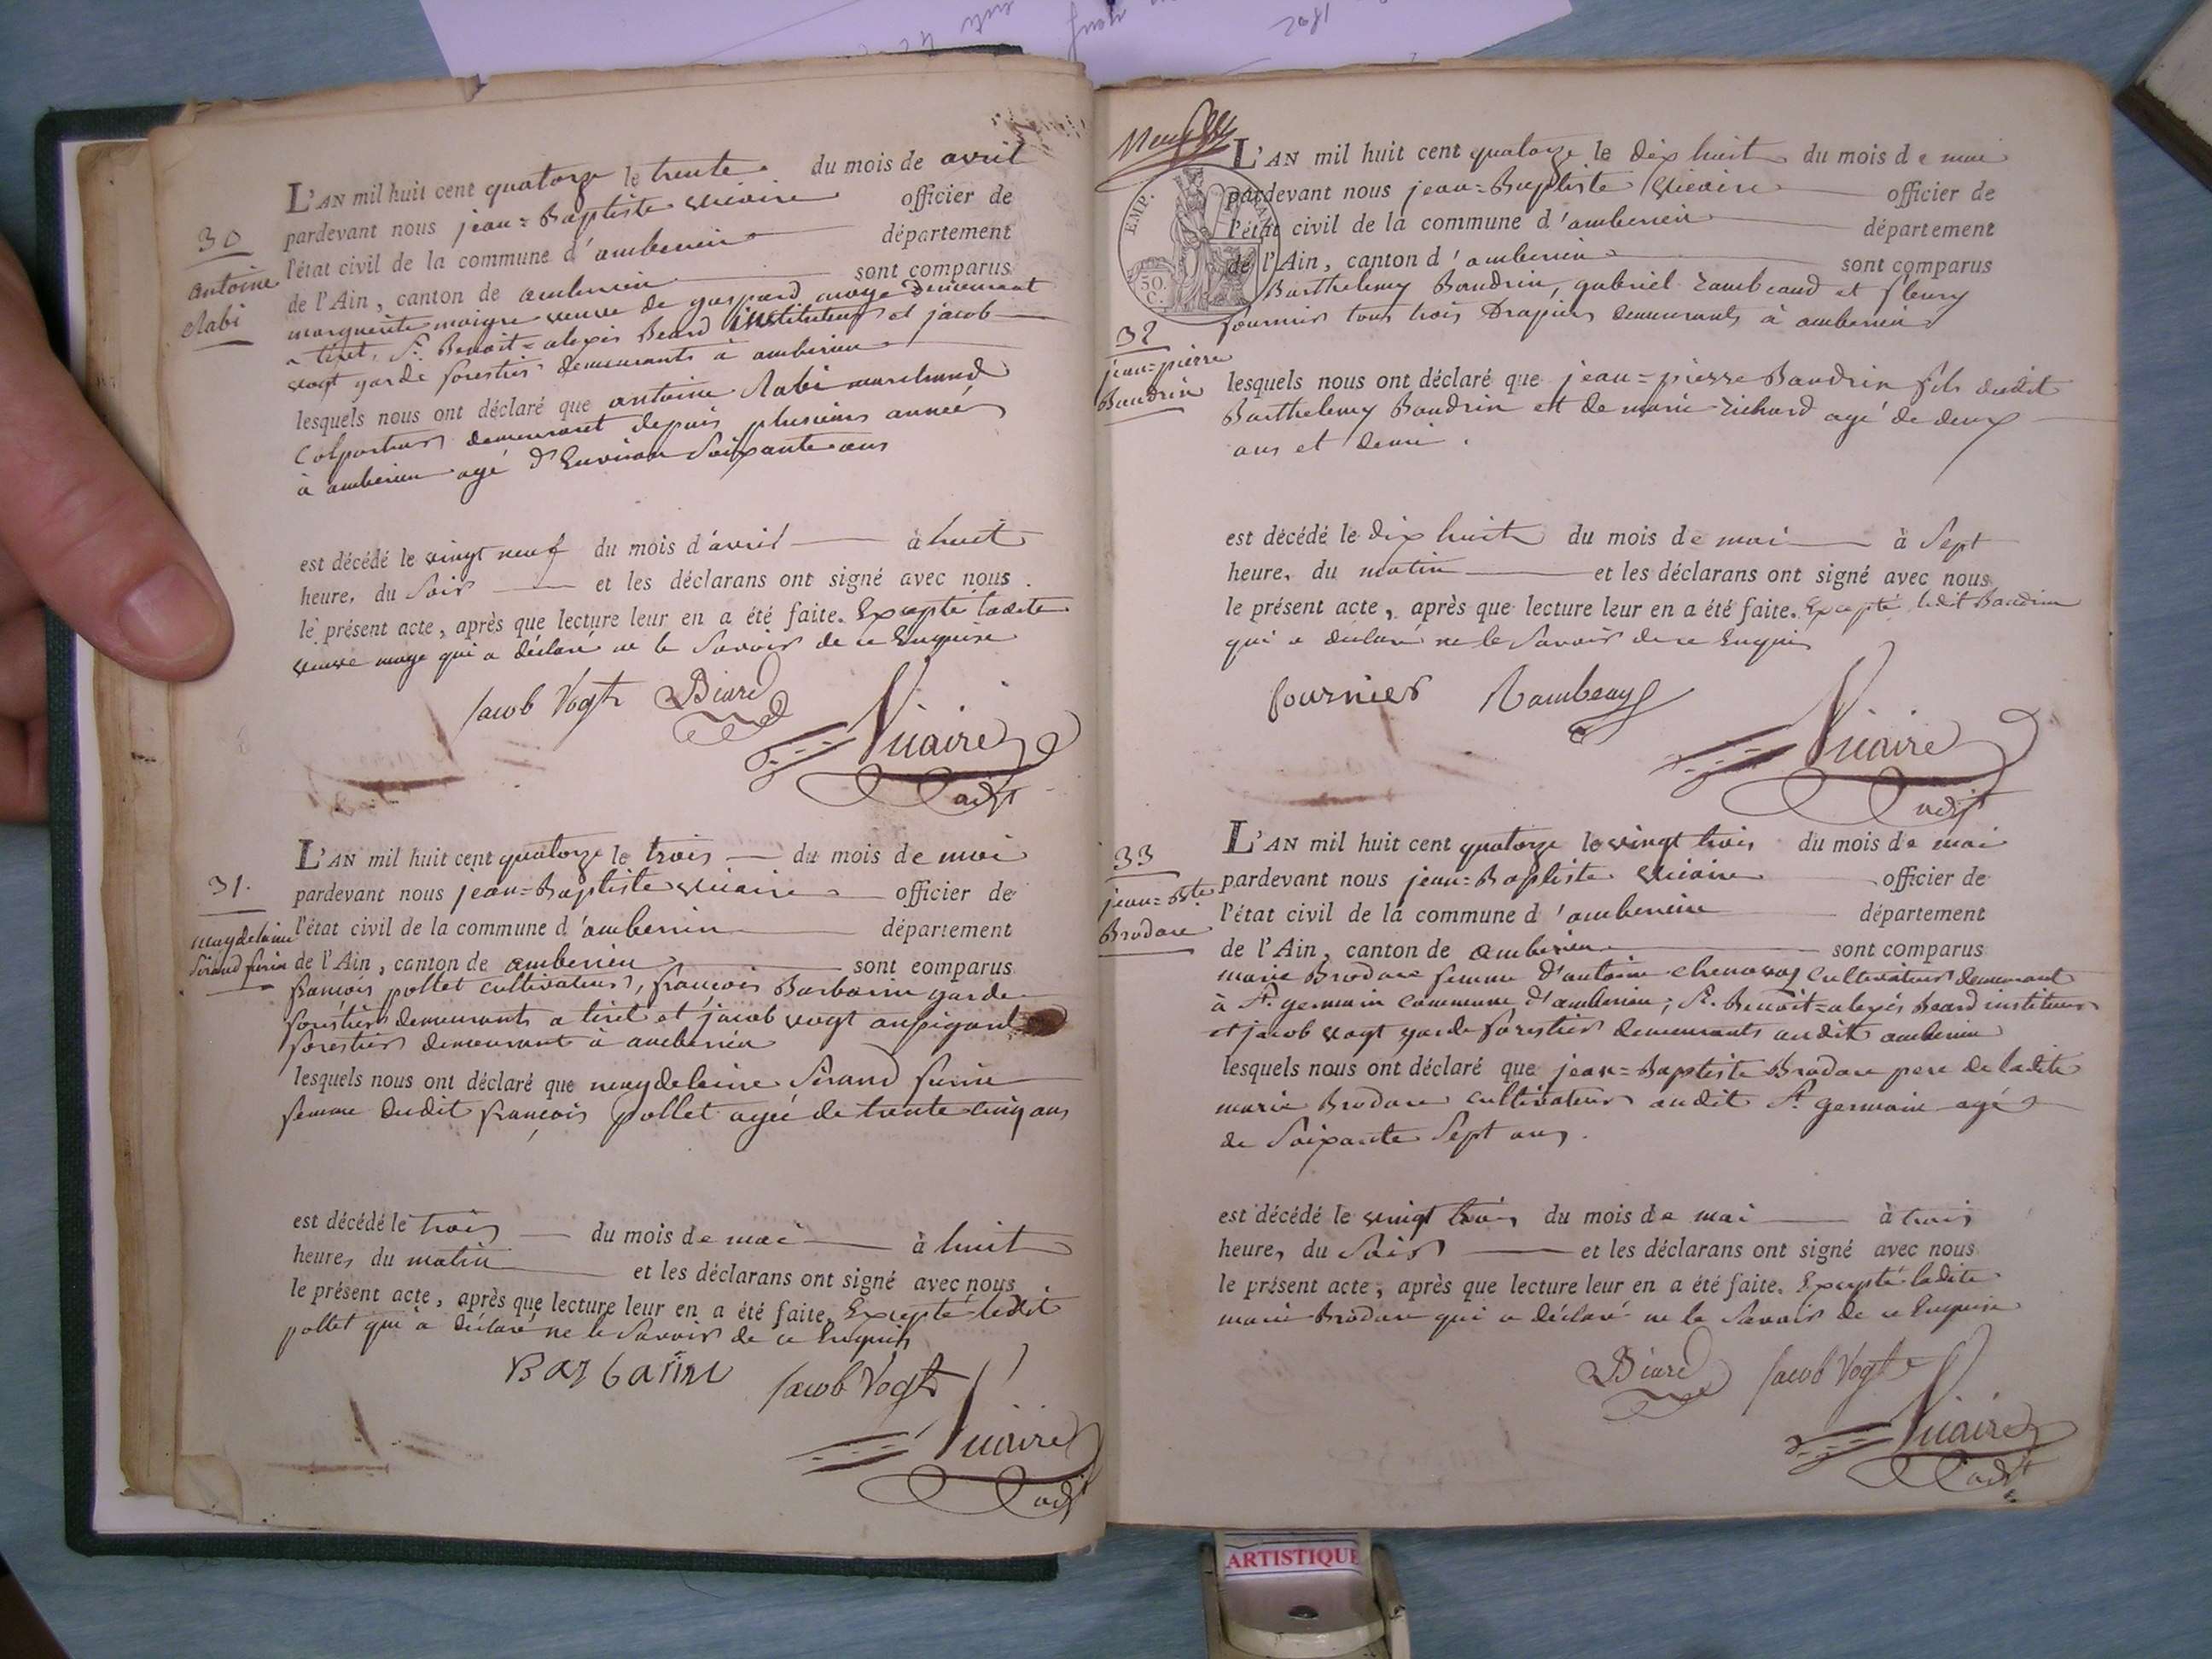 30
antoine
Rabi
L'AN mil huit cent quatorze le trente du mois de avril
pardevant nous jean=Baptiste vicaire officier de
l'état civil de la commune d'amberieu département
de l'Ain, canton de amberieu sont comparus
marguerite maigre veuve de gaspard moge demeurant
a tiret, Sr. Benoit=alexis Beard instituteur et jacob
vogt garde forestier demeurants à amberieu
lesquels nous ont déclaré que antoine Rabi marchand
colporteur demeurant depuis plusieurs années
à amberieu agé d'Environ Soixante ans
est décédé le vingt neuf du mois d'avril à huit
heure, du Soir et les déclarans ont signé avec nous
le présent acte, après que lecture leur en a été faite. Excepté ladite
veuve moge qui a déclaré ne le Savoir de ce Enquise
Jacob Vogt Béard
Vicaire
adjt
31.
magdelaine
Sirand furin
L'AN mil huit cent quatorze le trois du mois de mai
pardevant nous jean=Baptiste vicaire officier de
l'état civil de la commune d'amberieu département
de l'Ain, canton de amberieu sont comparus
francois pollet cultivateur, francois Barbarin garde
forestier demeurants a tiret et jacob vogt aussi garde
forestier demeurant à amberieu
lesquels nous ont déclaré que magdelaine Sirand furin
femme dudit francois pollet agée de trente cinq ans
est décédé le trois du mois de mai à huit
heure, du matin et les déclarans ont signé avec nous
le présent acte, après que lecture leur en a été faite. Excepté ledit
pollet qui a déclaré ne le Savoir de ce Enquis
Barbarin Jacob Vogt
Vicaire
adjt
EMP.
50.
C.
32
jean=pierre
Baudrin
L'AN mil huit cent quatorze le dix huit du mois de mai
pardevant nous jean=Baptiste vicaire officier de
l'état civil de la commune d'amberieu département
de l'Ain, canton d'amberieu sont comparus
Barthelemy Baudrin, gabriel Rambeaud et fleury
fournier tous trois Drapiers demeurants à amberieu
lesquels nous ont déclaré que jean=pierre Baudrin fils dudit
Barthelemy Baudrin et de marie Richard agé de deux
ans et demi.
est décédé le dix huit du mois de mai à Sept
heure, du matin et les déclarans ont signé avec nous
le présent acte, après que lecture leur en a été faite. Excepté ledit Baudrin
qui a déclaré ne le Savoir de ce Enquis
fournier Rambeaud
Vicaire
adjt
33
jean=Bte
Brodare
L'AN mil huit cent quatorze le vingt trois du mois de mai
pardevant nous jean=Baptiste vicaire officier de
l'état civil de la commune d'amberieu département
de l'Ain, canton de amberieu sont comparus
marie Brodare femme d'antoine chenavas cultivateur demeurant
à St. germain commune d'amberieu; Sr. Benoit=alexis Beard instituteur
et jacob vogt garde forestier demeurants audit amberieu
lesquels nous ont déclaré que jean=Baptiste Brodare pere de ladite
marie Brodare cultivateur audit St. germain agé
de Soixante Sept ans.
est décédé le vingt trois du mois de mai à trois
heure, du Soir et les déclarans ont signé avec nous
le présent acte, après que lecture leur en a été faite. Excepté ladite
marie Brodare qui a déclaré ne le Savoir de ce Enquise
Béard Jacob Vogt
Vicaire
adjt
ARTISTIQUE